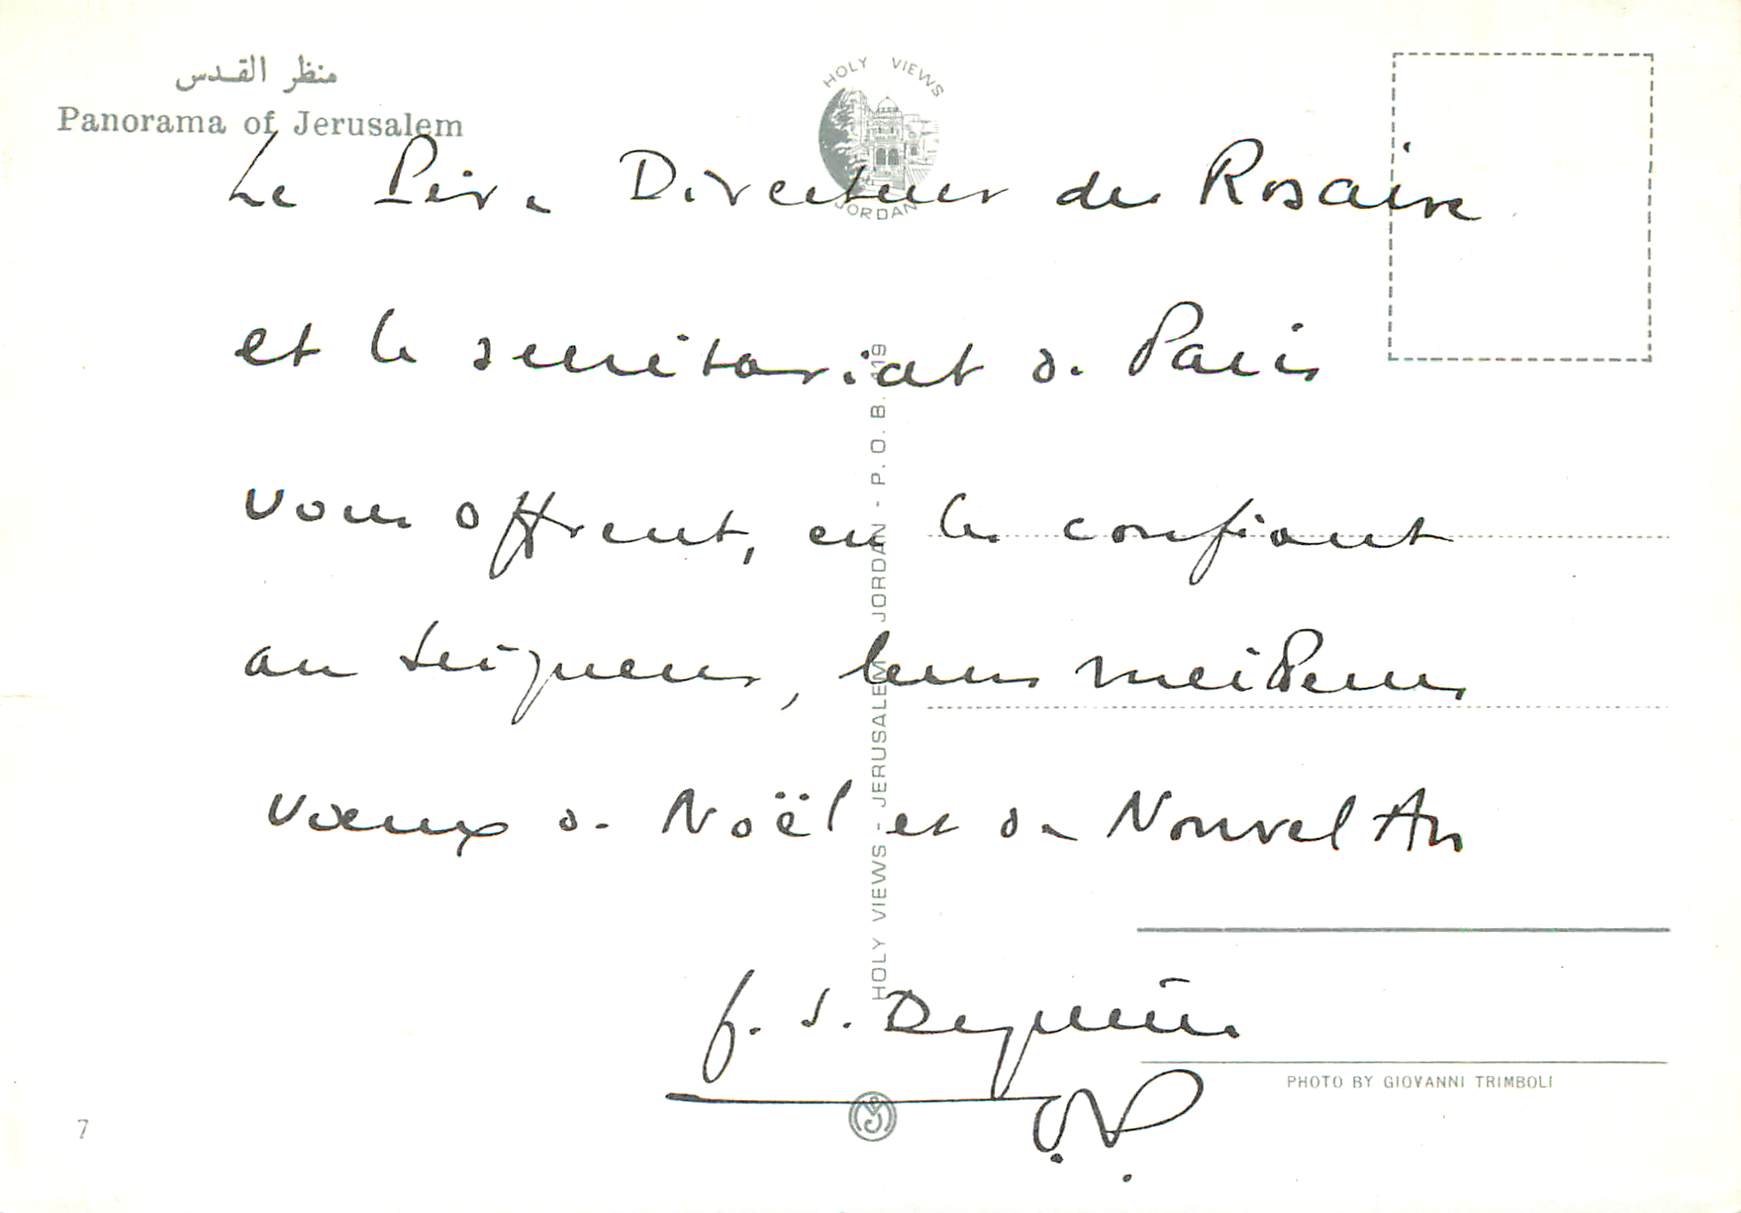 منظر القدس
Panorama of Jerusalem
HOLY VIEWS
JORDAN
Le Père Directeur du Rosaire
et le secrétariat de Paris
vous offrent, en les confiant
au Seigneur, leurs meilleurs
vœux de Noël et de Nouvel An
f. J.
O.P.
HOLY VIEWS - JERUSALEM JORDAN - P. O. B. 419
PHOTO BY GIOVANNI TRIMBOLI
7